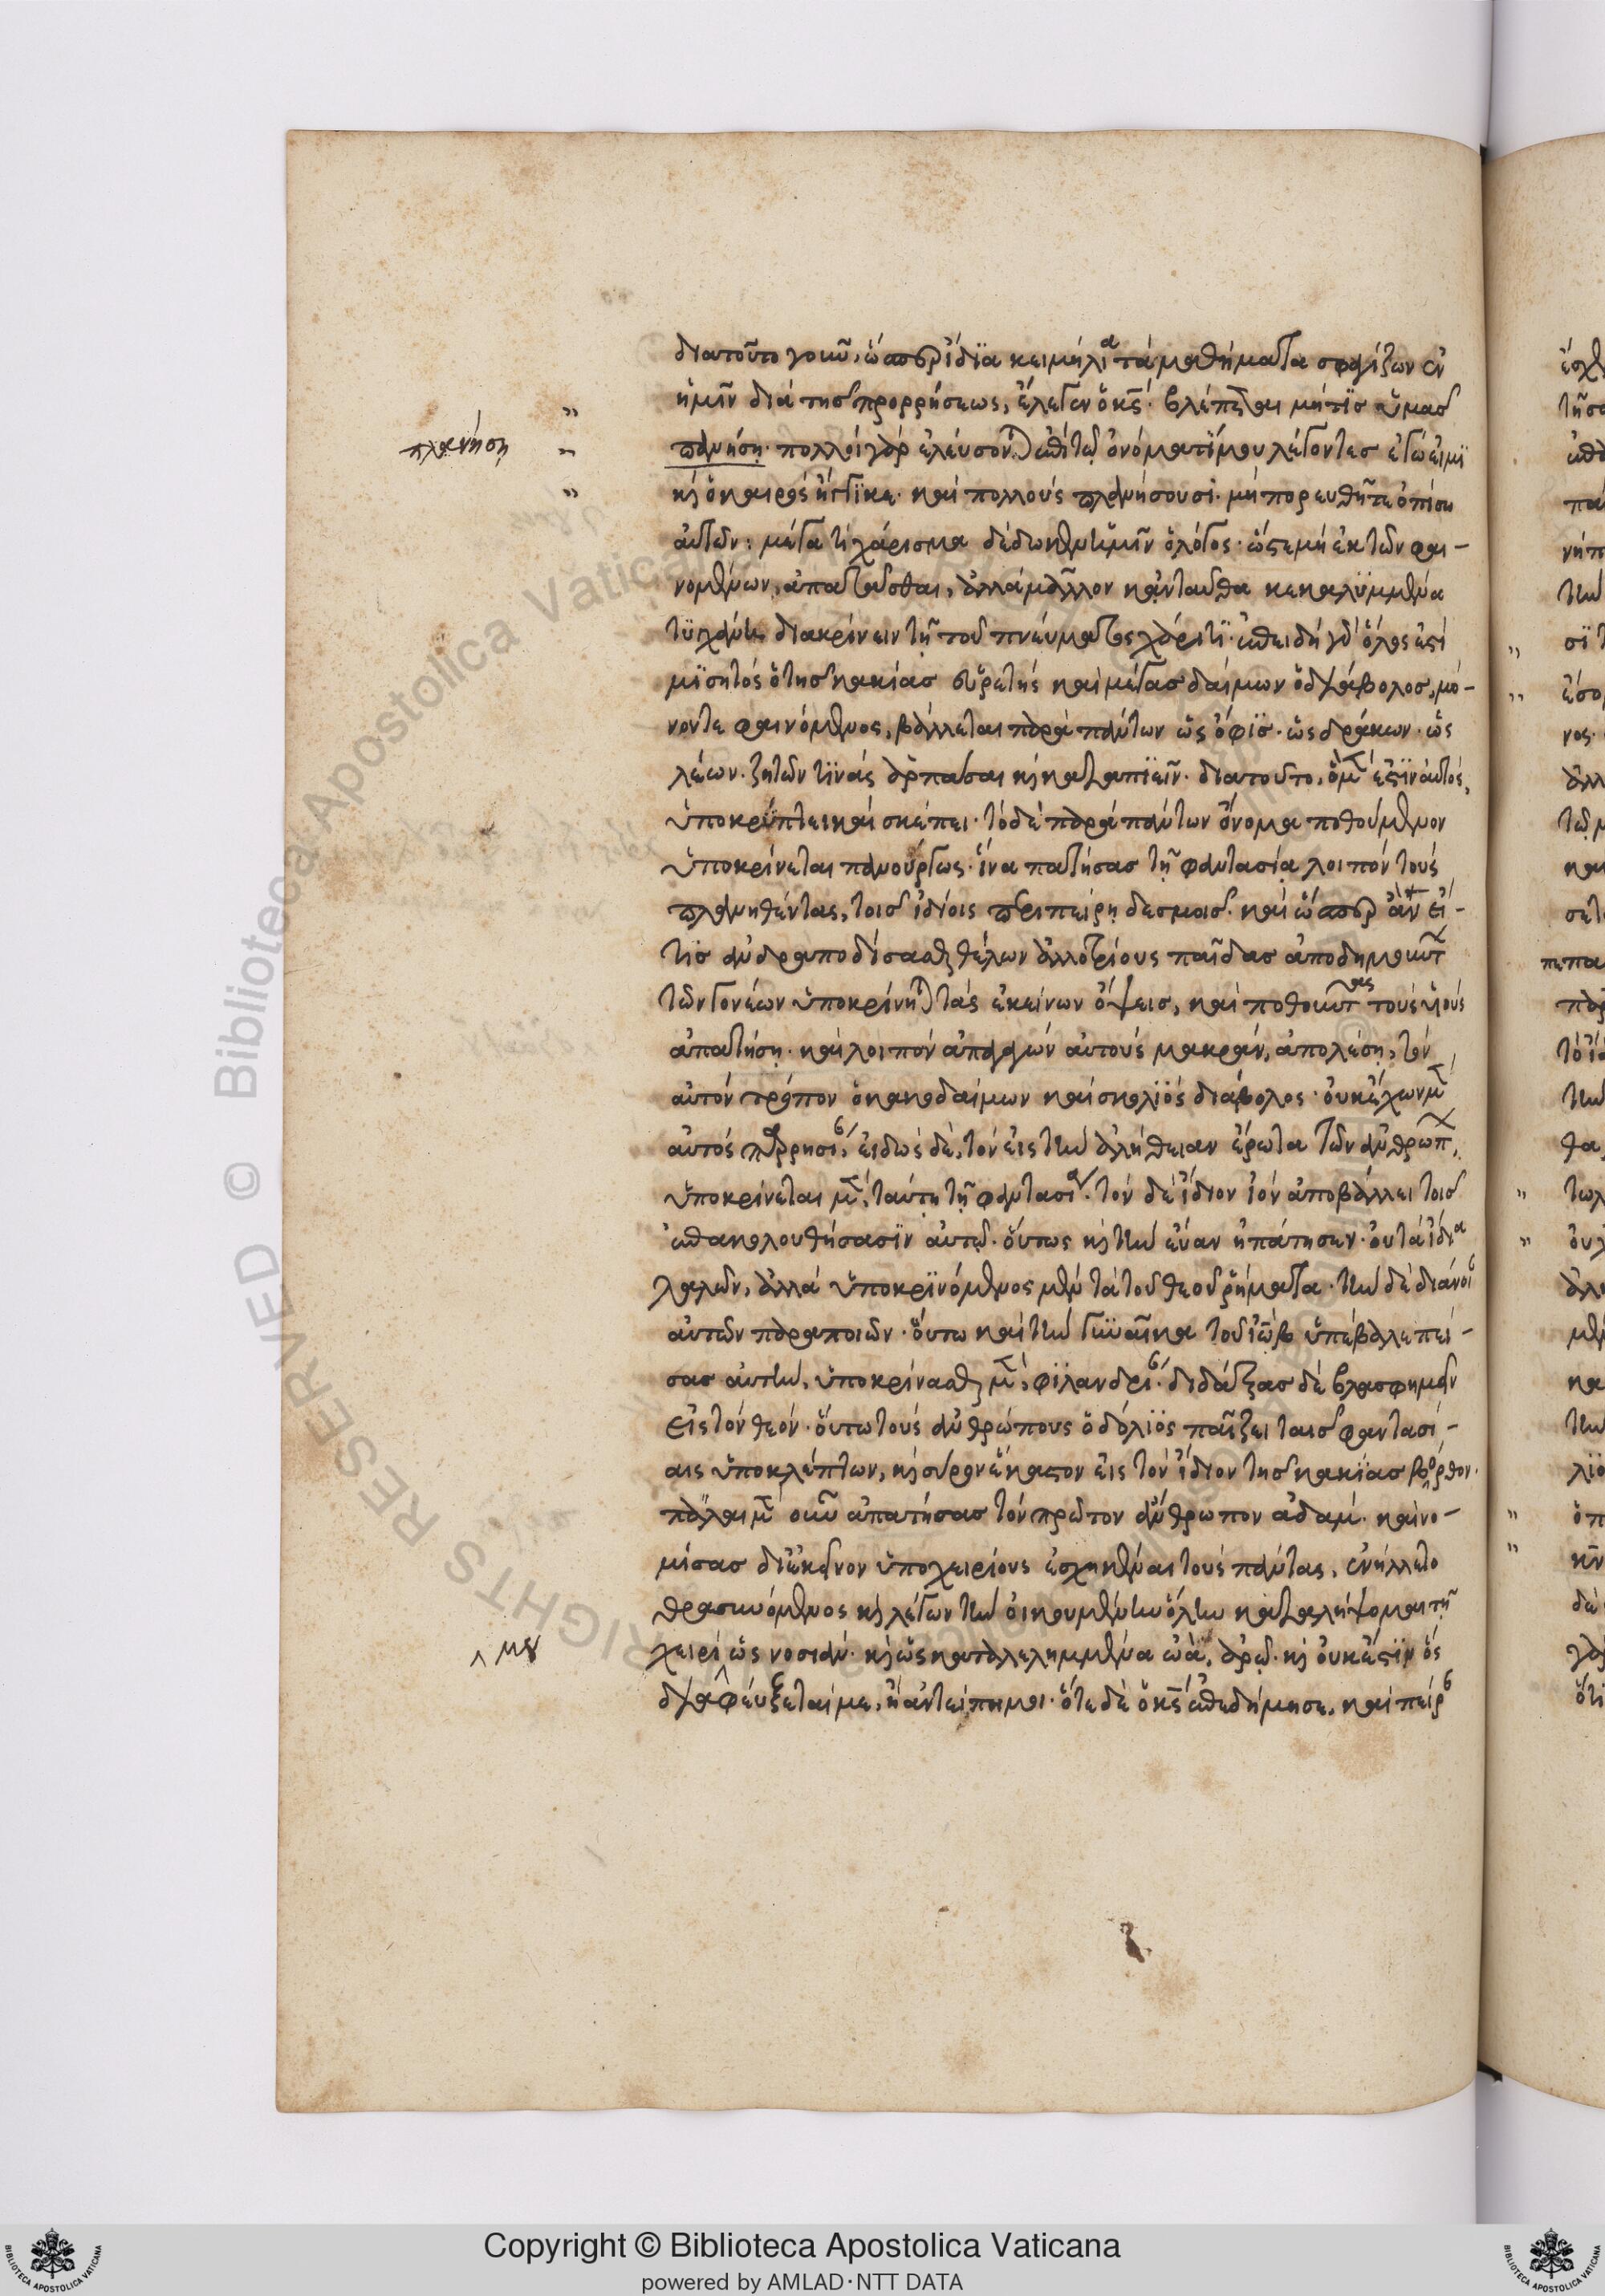 διατοῦτο γοῦν, ὥσπερ ἴδϊα κειμήλια τὰ μαθήματα σφαλίζων ἐν
ἡμῖν διὰ τῆς προρρήσεως, ἔλεγεν ὁ κς̅· βλέπεσθαι μήτϊς ὑμᾶς
πλανήση
πλανήσῃ· πολλοὶ γὰρ ἐλεύσονται ἐπὶ τῷ ὀνόματί μου λέγοντες ἐγώ εἰμϊ
κὶ ὁ καιρὸς ἤγγϊκε· καὶ πολλοὺς πλανήσουσι· μὴ πορευθῆτε ὀπίσω
αὐτῶν: μέγα τὶ χάρισμα δέδωκεν ἡμῖν ὁ λόγος· ὥστε μὴ ἐκ τῶν φαι-
νομένων, ἀπατᾶσθαι, ἀλλὰ μᾶλλον κἂν ταῦτα κεκαλϋμμένα
τϋγχάνη διακρίνειν τῇ τοῦ πνεύματος χάριτϊ· ἐπειδὴ γὰρ ὅλος ἐστὶ
μϊσητὸς ὁ τῆς κακίας εὑρετὴς καὶ μέγας δαίμων ὁ διάβολος, μό-
νον τε φαινόμενος, βάλλεται παρὰ πάντων ὡς ὄφϊς· ὡς δράκων· ὡς
λέων· ζητῶν τϊνὰς ἁρπάσαι κὶ καταπϊεῖν· διατοῦτο, ὃ μὲν ἐστϊν αὐτὸς,
ὑποκρύπτει καὶ σκέπει· τὸ δὲ παρὰ πάντων ὄνομα ποθούμενον
ὑποκρίνεται πανούργως· ἵνα πατήσας τῇ φαντασίᾳ λοιπὸν τοὺς
πλανηθέντας, τοῖς ἰδίοις περιπείρῃ δεσμοῖς· καὶ ὥσπερ ἂν εἴ-
τϊς ἀνδραποδίσασθαι θέλων ἀλλοτρίους παῖδας ἀποδημούντων
τῶν γονέων ὑποκρίνηται τὰς ἐκείνων ὄψεις, καὶ ποθοῦντας τοὺς υἱοὺς
ἀπατήσῃ· καὶ λοιπὸν ἀπαγαγὼν αὐτοὺς μακρὰν, ἀπολέσῃ, τὸν
αὐτὸν τρόπον ὁ κακοδαίμων καὶ σκολϊὸς διάβολος· οὐκ ἔχων μὲν
αὐτὸς παρρησίαν, εἰδὼς δὲ, τὸν εἰς τὴν ἀλήθειαν ἔρωτα τῶν ἀνθρώπων,
ὑποκρίνεται μὲν, ταύτῃ τῇ φαντασίᾳ· τὸν δὲ ἴδιον ἰὸν ἀποβάλλει τοῖς
ἐπακολουθήσασϊν αὐτῷ· οὕτως κὶ τὴν εὔαν ἠπάτησεν· οὐ τὰ ἴδια
λαλῶν, ἀλλὰ ὑποκρϊνόμενος μὲν τὰ τοῦ θεοῦ ῥήματα· τὴν δὲ διάνοιαν
αὐτῶν παραποιῶν· οὕτω καὶ τὴν γϋναῖκα τοῦ ἰὼβ ὑπέβαλε πεί-
σας αὐτὴν, ὑποκρίνασθαι μὲν, φϊλανδρίαν· διδάξας δὲ βλασφημεῖν
εἰς τὸν θεόν· οὕτω τοὺς ἀνθρώπους ὁ δόλϊος παΐζει ταῖς φαντασί-
αις ὑποκλέπτων, κὶ σύρων ἕκαστον εἰς τὸν ἴδιον τῆς κακίας βόρθον·
πάλαι μὲν οὖν ἀπατήσας τὸν πρῶτον ἄνθρωπον ἀδάμ· καὶ νο-
μίσας δι᾽ ἐκεῖνον ὑποχειρίους ἐσχηκέναι τοὺς πάντας, ἐνήλλετο
θρασυνόμενος κὶ λέγων τὴν οἰκουμένην ὅλην καταλήψομαι τῇ
^ μου
χειρὶ ^ ὡς νοσιάν· κὶ ὡς καταλελημμένα ὠὰ, ἀρῶ· κὶ οὐκ ἔστϊν ὃς
διαφεύξεταί με, ἢ ἀντείπη μοι· ὅτε δὲ ὁ κς̅ ἐπεδήμησε, καὶ πεῖραν